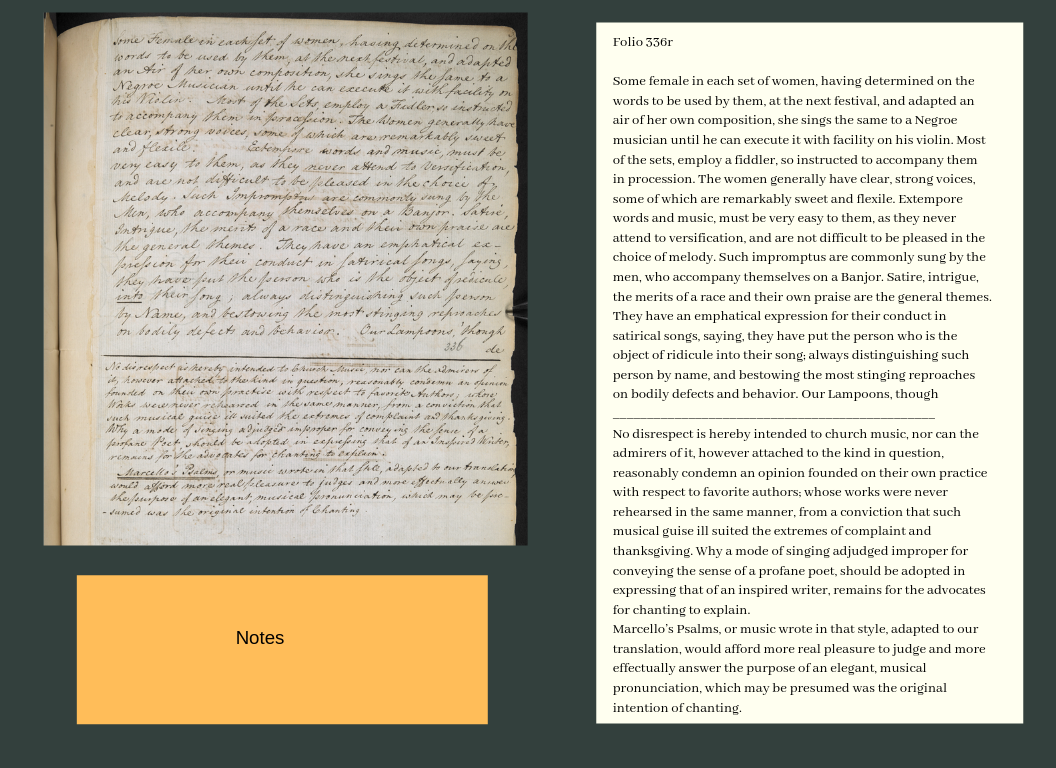 some Female in each set of women, having determined on the
words to be used by them, at the next festival, and adapted
an Air of her own composition, she sings the same to a
Negroe Musician until he can execute it with facility on
his Violin. Most of the Sets, employ a Fiedler so instructed
to accompany them in procession. The Women generally have
clear, strong voices, some of which are remarkably sweet
and flexile. Extempore words and music, must be
very easy to them, as they never attend to Versification,
and are not difficult to be pleased in the choice of
Melody. Such Impromptus are commonly sung by the
Men, who accompany themselves on a Banjor. Satire,
Intrigue, the merits of a race and their own praise are
the general themes. They have an emphatical ex-
pression for their conduct in satirical songs, saying,
they have put the person who is the object of ridicule,
into their song; always distinguishing such person
by Name, and bestowing the most stinging reproaches
on bodily defects and behavior. Our Lampoons, though
336 de
No disrespect is hereby intended to Church Music, nor can the admirers of
it, however attached to the kind in question, reasonably condemn an opinion
founded on their own practise with respect to favorite Authors; whose
Works were never rehearsed in the same manner, from a conviction that
such musical guise ill suited the extremes of complaint and thanksgiving.
Why a mode of singing adjudged improper for conveying the sense of a
profane Poet, should be adopted in expressing that of an Inspired Writer,
remains for the advocates for chanting to explain.
Marcello's Psalms, or music wrote in that stile, adapted to our translation
would afford more real pleasure to judges and more effectually answer
the purpose of an elegant, musical pronunciation, which may be pre-
-sumed was the original intention of Chanting.
Notes
Folio 336r
Some female in each set of women, having determined on the
words to be used by them, at the next festival, and adapted an
air of her own composition, she sings the same to a Negroe
musician until he can execute it with facility on his violin. Most
of the sets, employ a fiddler, so instructed to accompany them
in procession. The women generally have clear, strong voices,
some of which are remarkably sweet and flexile. Extempore
words and music, must be very easy to them, as they never
attend to versification, and are not difficult to be pleased in the
choice of melody. Such impromptus are commonly sung by the
men, who accompany themselves on a Banjor. Satire, intrigue,
the merits of a race and their own praise are the general themes.
They have an emphatical expression for their conduct in
satirical songs, saying, they have put the person who is the
object of ridicule into their song; always distinguishing such
person by name, and bestowing the most stinging reproaches
on bodily defects and behavior. Our Lampoons, though
No disrespect is hereby intended to church music, nor can the
admirers of it, however attached to the kind in question,
reasonably condemn an opinion founded on their own practice
with respect to favorite authors; whose works were never
rehearsed in the same manner, from a conviction that such
musical guise ill suited the extremes of complaint and
thanksgiving. Why a mode of singing adjudged improper for
conveying the sense of a profane poet, should be adopted in
expressing that of an inspired writer, remains for the advocates
for chanting to explain.
Marcello's Psalms, or music wrote in that style, adapted to our
translation, would afford more real pleasure to judge and more
effectually answer the purpose of an elegant, musical
pronunciation, which may be presumed was the original
intention of chanting.